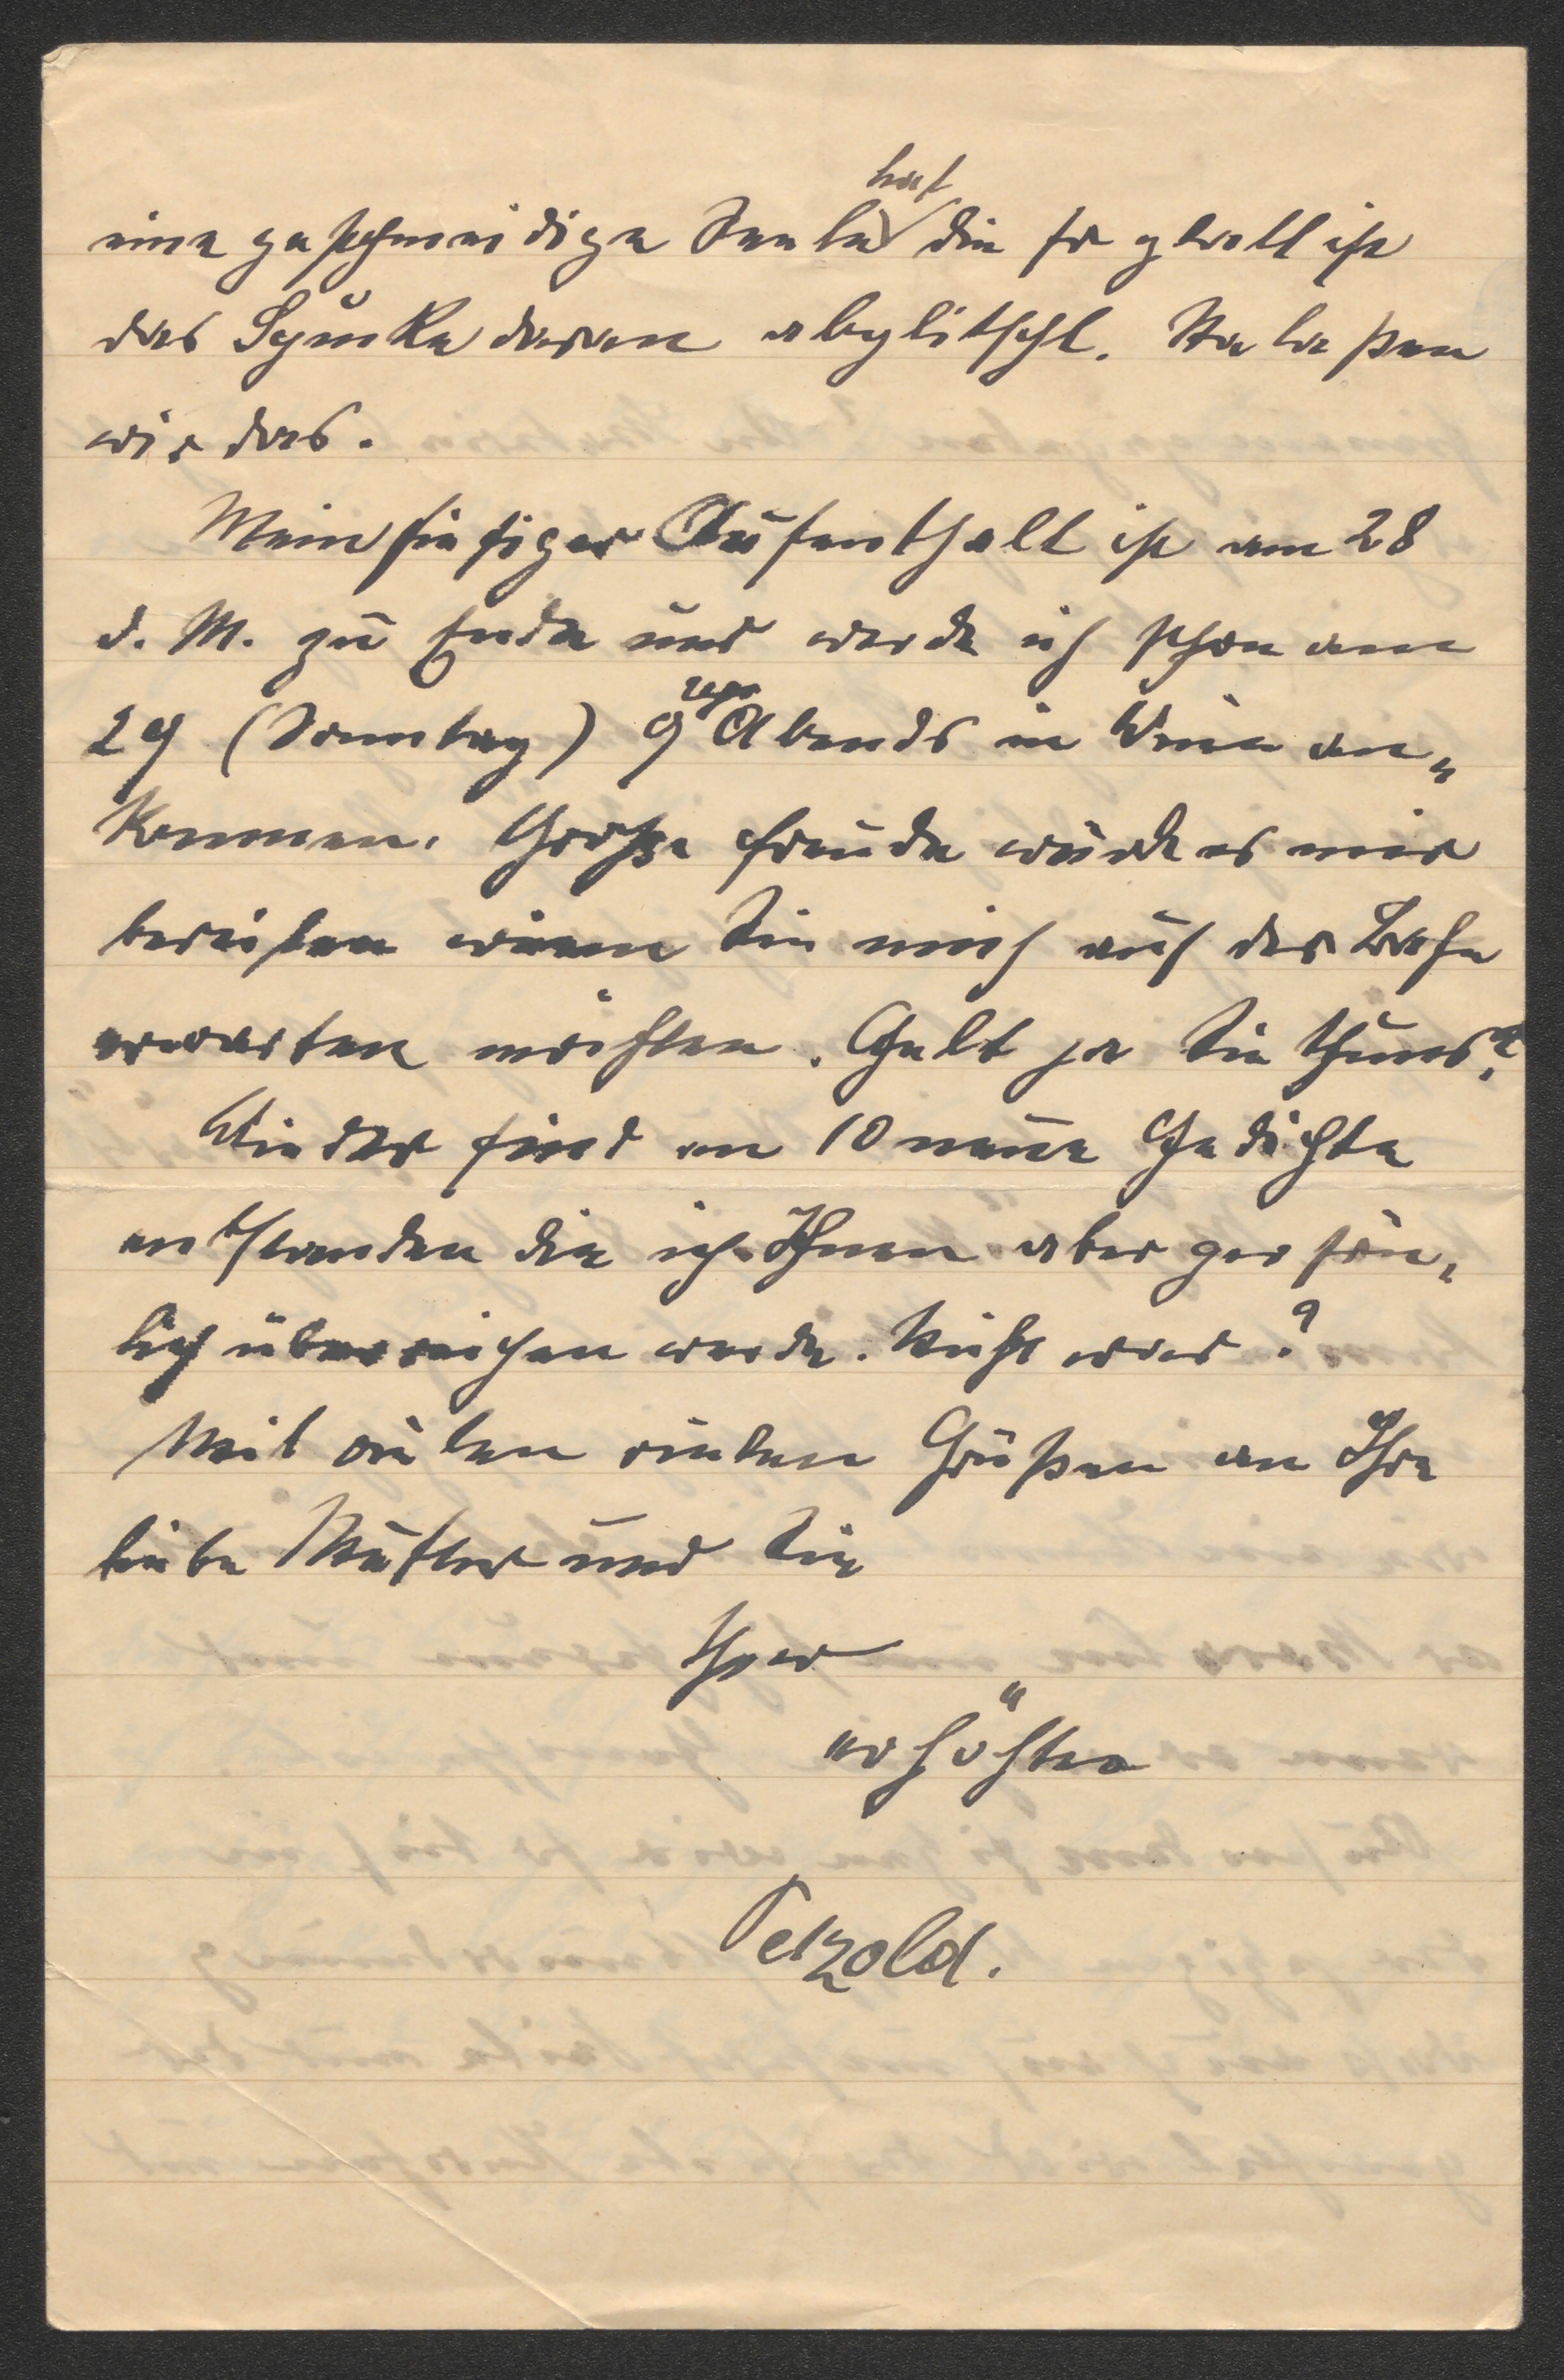 eine geschmeidige Seele hat die so glatt ist
das Spucke daran abglitscht. Na laßen
wir das.
Mein hiesiger Aufenthalt ist am 28
d. M. zu Ende und werde ich schon am
29 (Sonntag) 9 Uhr Abends in Wien an„
kommen. Große Freude würde es mir
bereiten wenn Sie mich auf der Bahn
erwarten möchten. Gelt ja Sie thuns?
Wieder sind an 10 neue Gedichte
entstanden die ich Ihnen aber persön„
lich überreichen werde. Nicht wahr?
Mit vielen vielen Grüßen an Ihre
liebe Mutter und Sie
Ihr
"erhöhter"
Petzold.